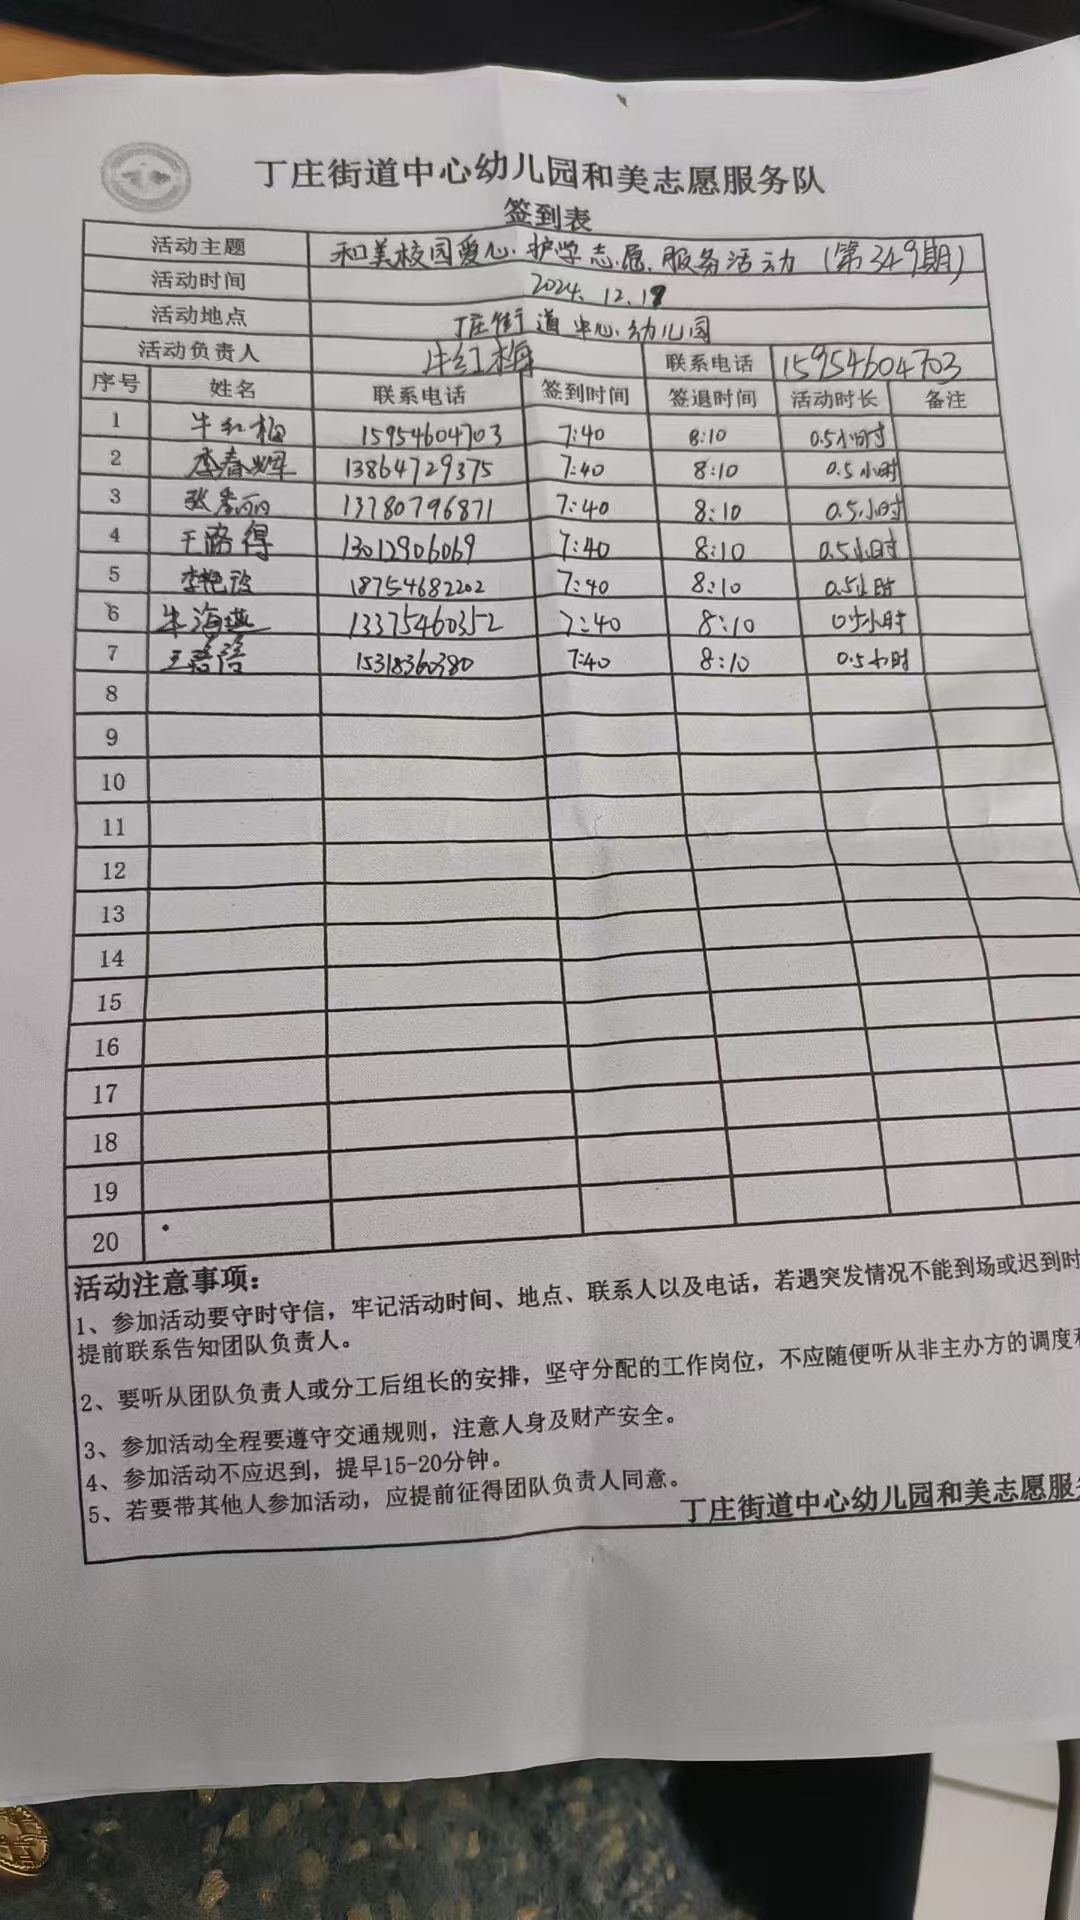 丁庄街道中心幼儿园和美志愿服务队
签到表
活动主题 和美校园爱心护学志愿服务活动（第349期）
活动时间 2024.12.1
活动地点 丁庄街道中心幼儿园
活动负责人 牛红梅 联系电话 15954604703
序号 姓名 联系电话 签到时间 签退时间 活动时长 备注
1 牛红梅 15954604703 7:40 8:10 0.5小时
2 李春辉 13864729375 7:40 8:10 0.5小时
3 张秀丽 13780796871 7:40 8:10 0.5小时
4 王路得 13012906069 7:40 8:10 0.5小时
5 李艳波 18754682202 7:40 8:10 0.5小时
6 牛海燕 13375460352 7:40 8:10 0.5小时
7 王 15318360380 7:40 8:10 0.5小时
8
9
10
11
12
13
14
15
16
17
18
19
20
活动注意事项：
1、参加活动要守时守信，牢记活动时间、地点、联系人以及电话，若遇突发情况不能到场或迟到时
提前联系告知团队负责人。
2、要听从团队负责人或分工后组长的安排，坚守分配的工作岗位，不应随便听从非主办方的调度
3、参加活动全程要遵守交通规则，注意人身及财产安全。
4、参加活动不应迟到，提早15-20分钟。
5、若要带其他人参加活动，应提前征得团队负责人同意。
丁庄街道中心幼儿园和美志愿服